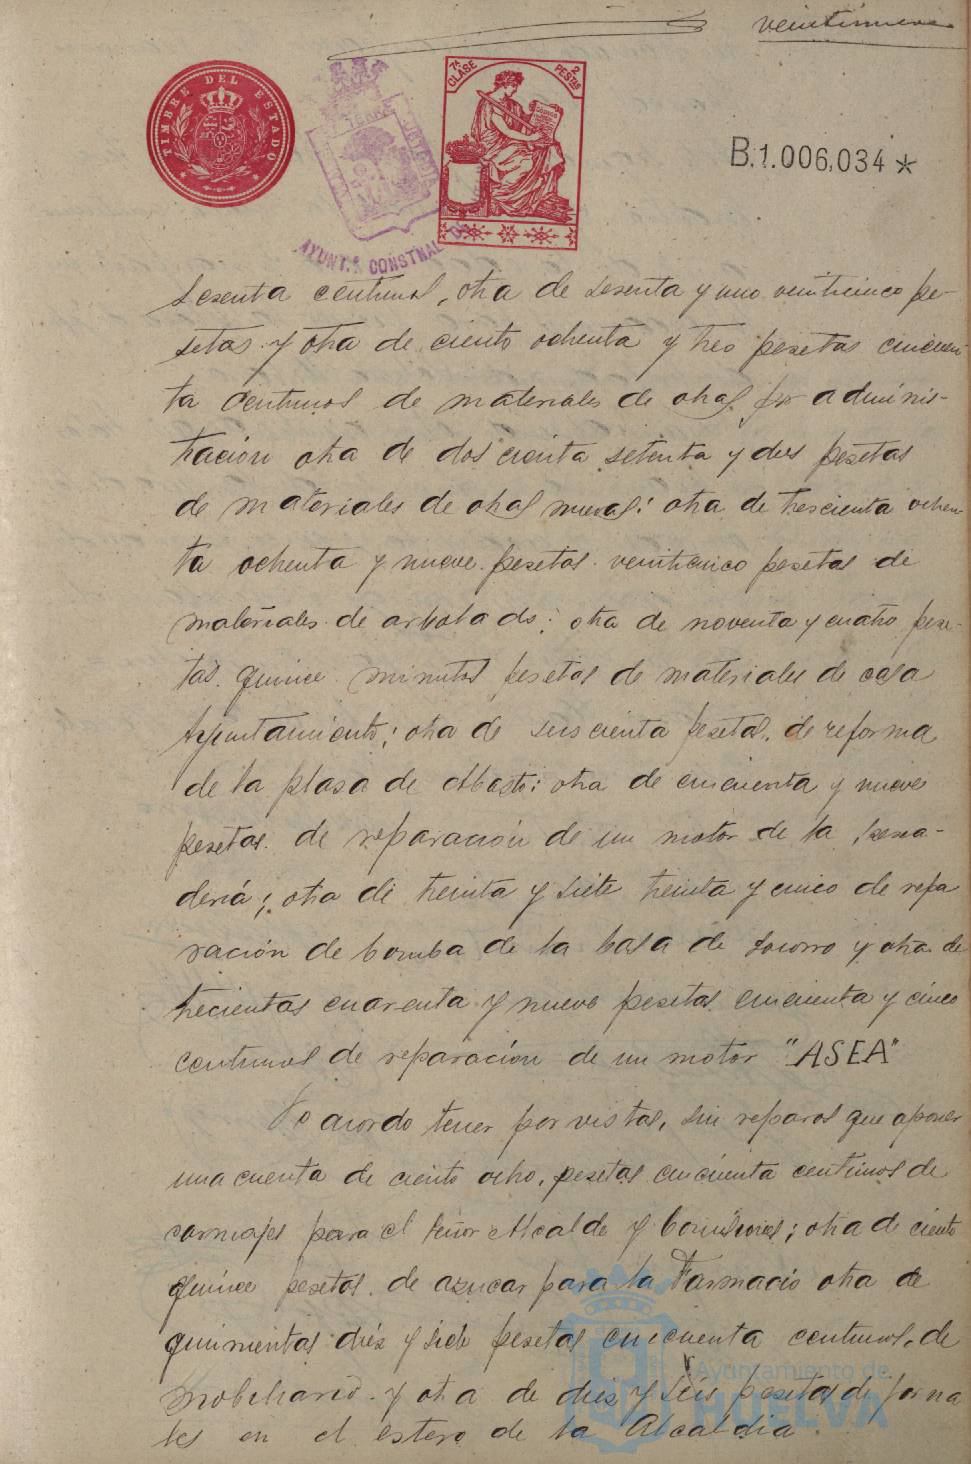 veintinueve
TIMBRE DEL ESTADO
7ª CLASE 2 PESTAS
AYUNT.º CONSTNAL DE
B.1.006,034 *
sesenta centimos, otra de sesenta y uno veinticinco pe-
setas y otra de ciento ochenta y tres pesetas cincuen-
ta centimos de materiales de obras por adminis-
tración otra de dos cienta setenta y dos pesetas
de materiales de obras nuevas; otra de trescienta ochen-
ta ochenta y nueve pesetas veinticinco pesetas de
materiales de arbolado; otra de noventa y cuatro pese-
tas quince minutos pesetas de materiales de casa
Ayuntamiento; otra de seiscienta pesetas de reforma
de la plasa de Abasto; otra de cincuenta y nueve
pesetas de reparación de un motor de la
deria; otra de treinta y siete treinta y cinco de repa
ración de bomba de la casa de Socorro y otra de
trecientas cuarenta y nueve pesetas cincuenta y cinco
centimos de reparación de un motor "ASEA"
So acordo tener por vistas, sin reparos que oponer
una cuenta de ciento ocho pesetas cincuenta centimos de
carruajes para el señor Alcalde y Comisiones; otra de ciento
quince pesetas de azucar para la Farmacia otra de
quinientas diez y siete pesetas cincuenta centimos de
mobiliario y otra de diez y seis pesetas de jorna
les en el estero de la Alcaldia.
Ayuntamiento de
HUELVA